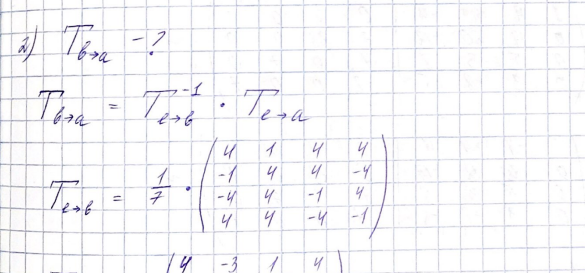 2) T в→a - ?
T в→a = T e→в ⁻¹ · T e→a
T e→в = 1/7 · ( 4 1 4 4
-1 4 4 -4
-4 4 -1 4
4 4 -4 -1 )
( 4 -3 1 4 )